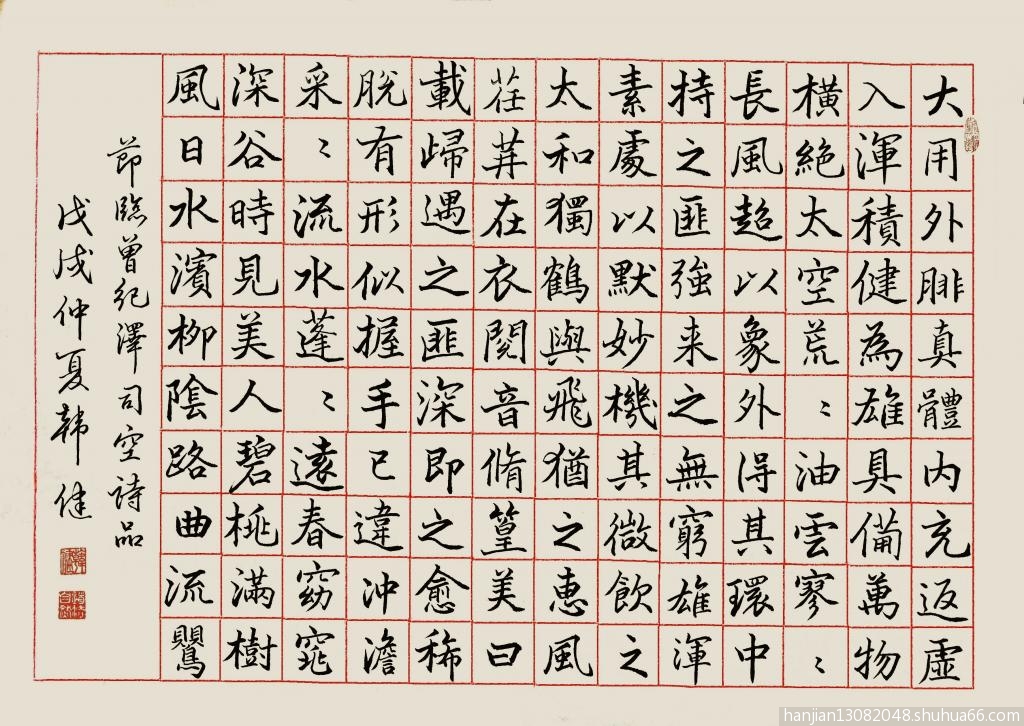 大用外腓真體內充返虛
入渾積健為雄具備萬物
橫絕太空荒〻油雲寥〻
長風超以象外得其環中
持之匪強来之無窮雄渾
素處以默妙機其微飲之
太和獨鶴與飛猶之惠風
荏苒在衣閱音脩篁美曰
載歸遇之匪深即之愈稀
脫有形似握手已違冲澹
采〻流水蓬〻遠春窈窕
深谷時見美人碧桃滿樹
風日水濱柳陰路曲流鸎
節臨曾紀澤司空詩品
戊戌仲夏韩健
hanjian13082048.shuhua66.com